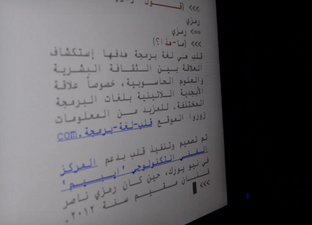 >>> (قـــول رمزي)
رمزي
==> رمزي
>>> (ما-هذا؟)
قلب هي لغة برمجة هدفها إستكشاف
العلاقة بين الثقافة البشرية
والعلوم الحاسوبية، خصوصاً علاقة
الأبجدية اللاتينية بلغات البرمجة
المختلفة. للمزيد من المعلومات
زوروا الموقع قلب-لغة-برمجة.com
تم تصميم وتنفيذ قلب بدعم المركز
الفني التكنولوجي "آيبيم"
في نيو يورك، حين كان رمزي ناصر
فنان مقيم سنة ٢٠١٢.
>>>